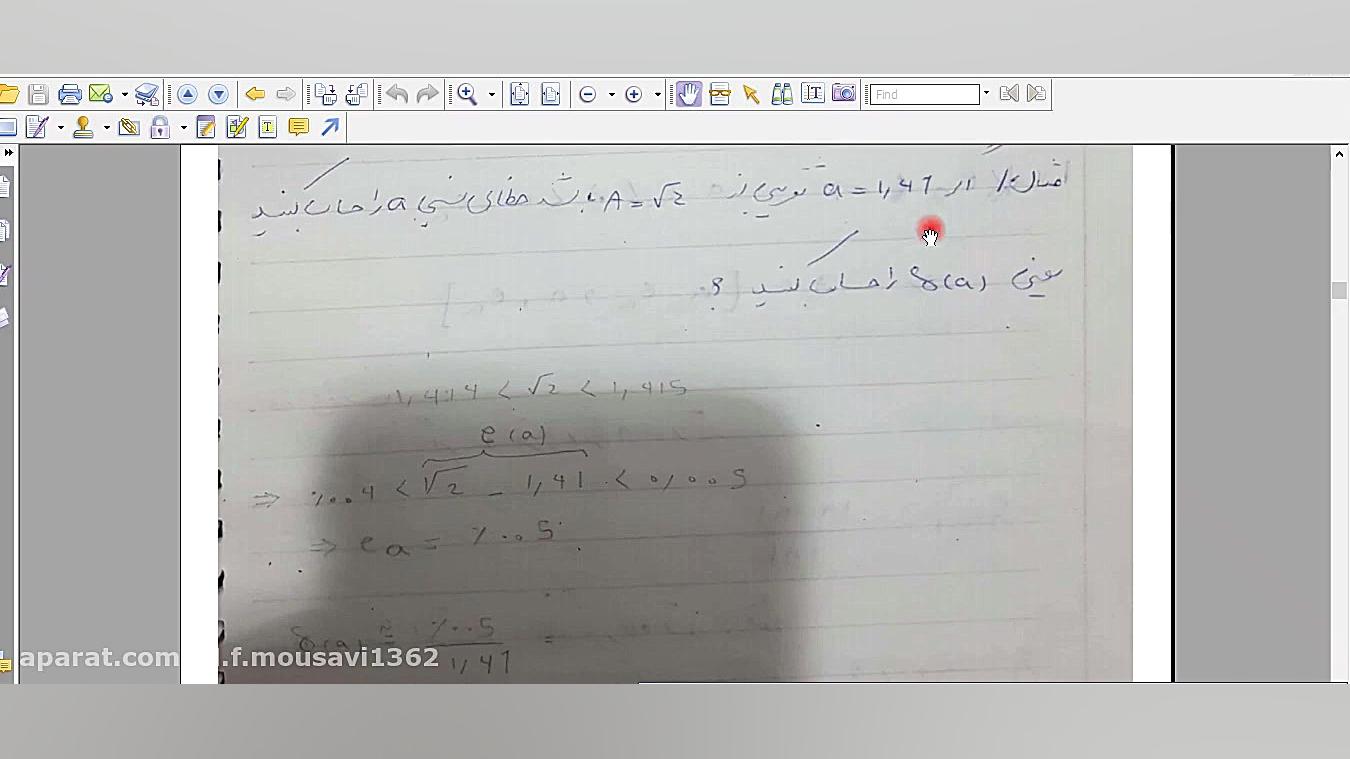 Find
مثال / اگر a = 1,41 تقریبی از A = √2 باشد خطای نسبی a را حساب کنید
یعنی δ(a) را حساب کنید ؟
1,414 < √2 < 1,415
e(a)
⇒ ٪۰۰4 < √2 − 1,41 < ۰٫۰۰5
⇒ e a = ٪۰۰5
δ(a) ≅ ٪۰۰5 / 1,41 =
aparat.com
.f.mousavi1362